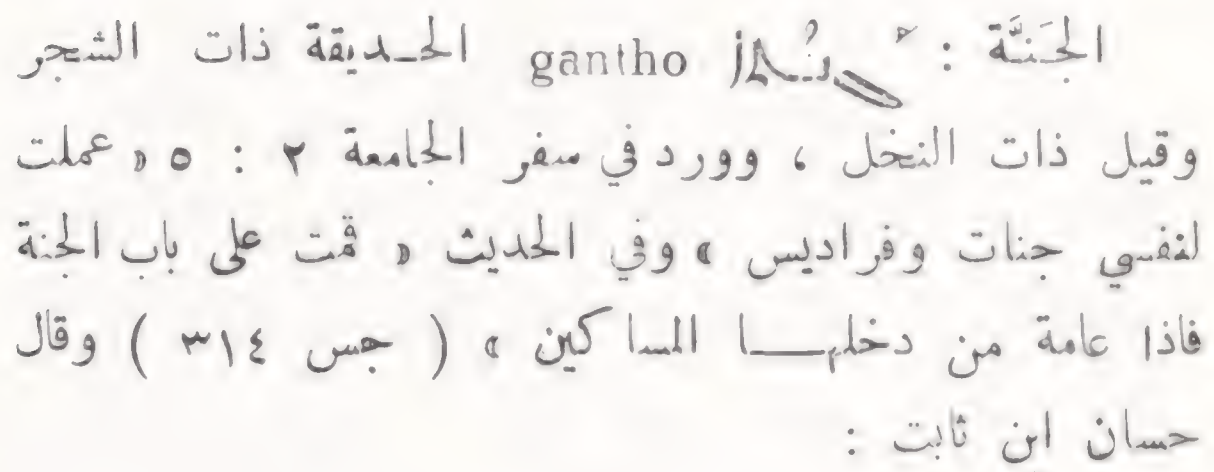 الجَنَّة : ܓܰܢܬܳܐ gantho الحـديقة ذات الشجر
وقيل ذات النخل ، وورد في سفر الجامعة ٢ : ٥ « عملت
لنفسي جنات وفراديس » وفي الحديث « قمت على باب الجنة
فاذا عامة من دخلهـــا المساكين » ( جس ٣١٤ ) وقال
حسان ابن ثابت :